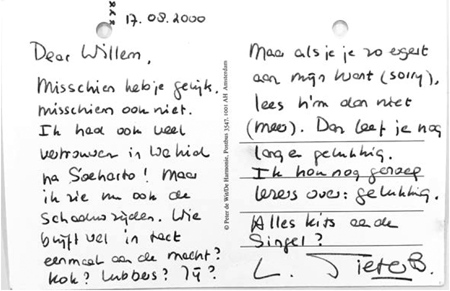 17.08.2000
Dear Willem,
Misschien heb je gelijk.
misschien ook niet.
Ik had ook veel
vertrouwen in Wahid
na Soeharto! Maar
ik zie nu ook de
schaduwzijden. Wie
blijft wel in tact
eenmaal aan de macht?
Kok? Lubbers? Jij?
© Peter de Wit/De Harmonie, Postbus 3547, 1001 AH Amsterdam
Maar als je je zo ergert
aan mijn krant (sorry),
lees h'm dan niet
(meer). Dan leef je nog
langer gelukkig.
Ik hou nog genoeg
lezers over: gelukkig.
Alles kits aan de
Singel?
L. B.